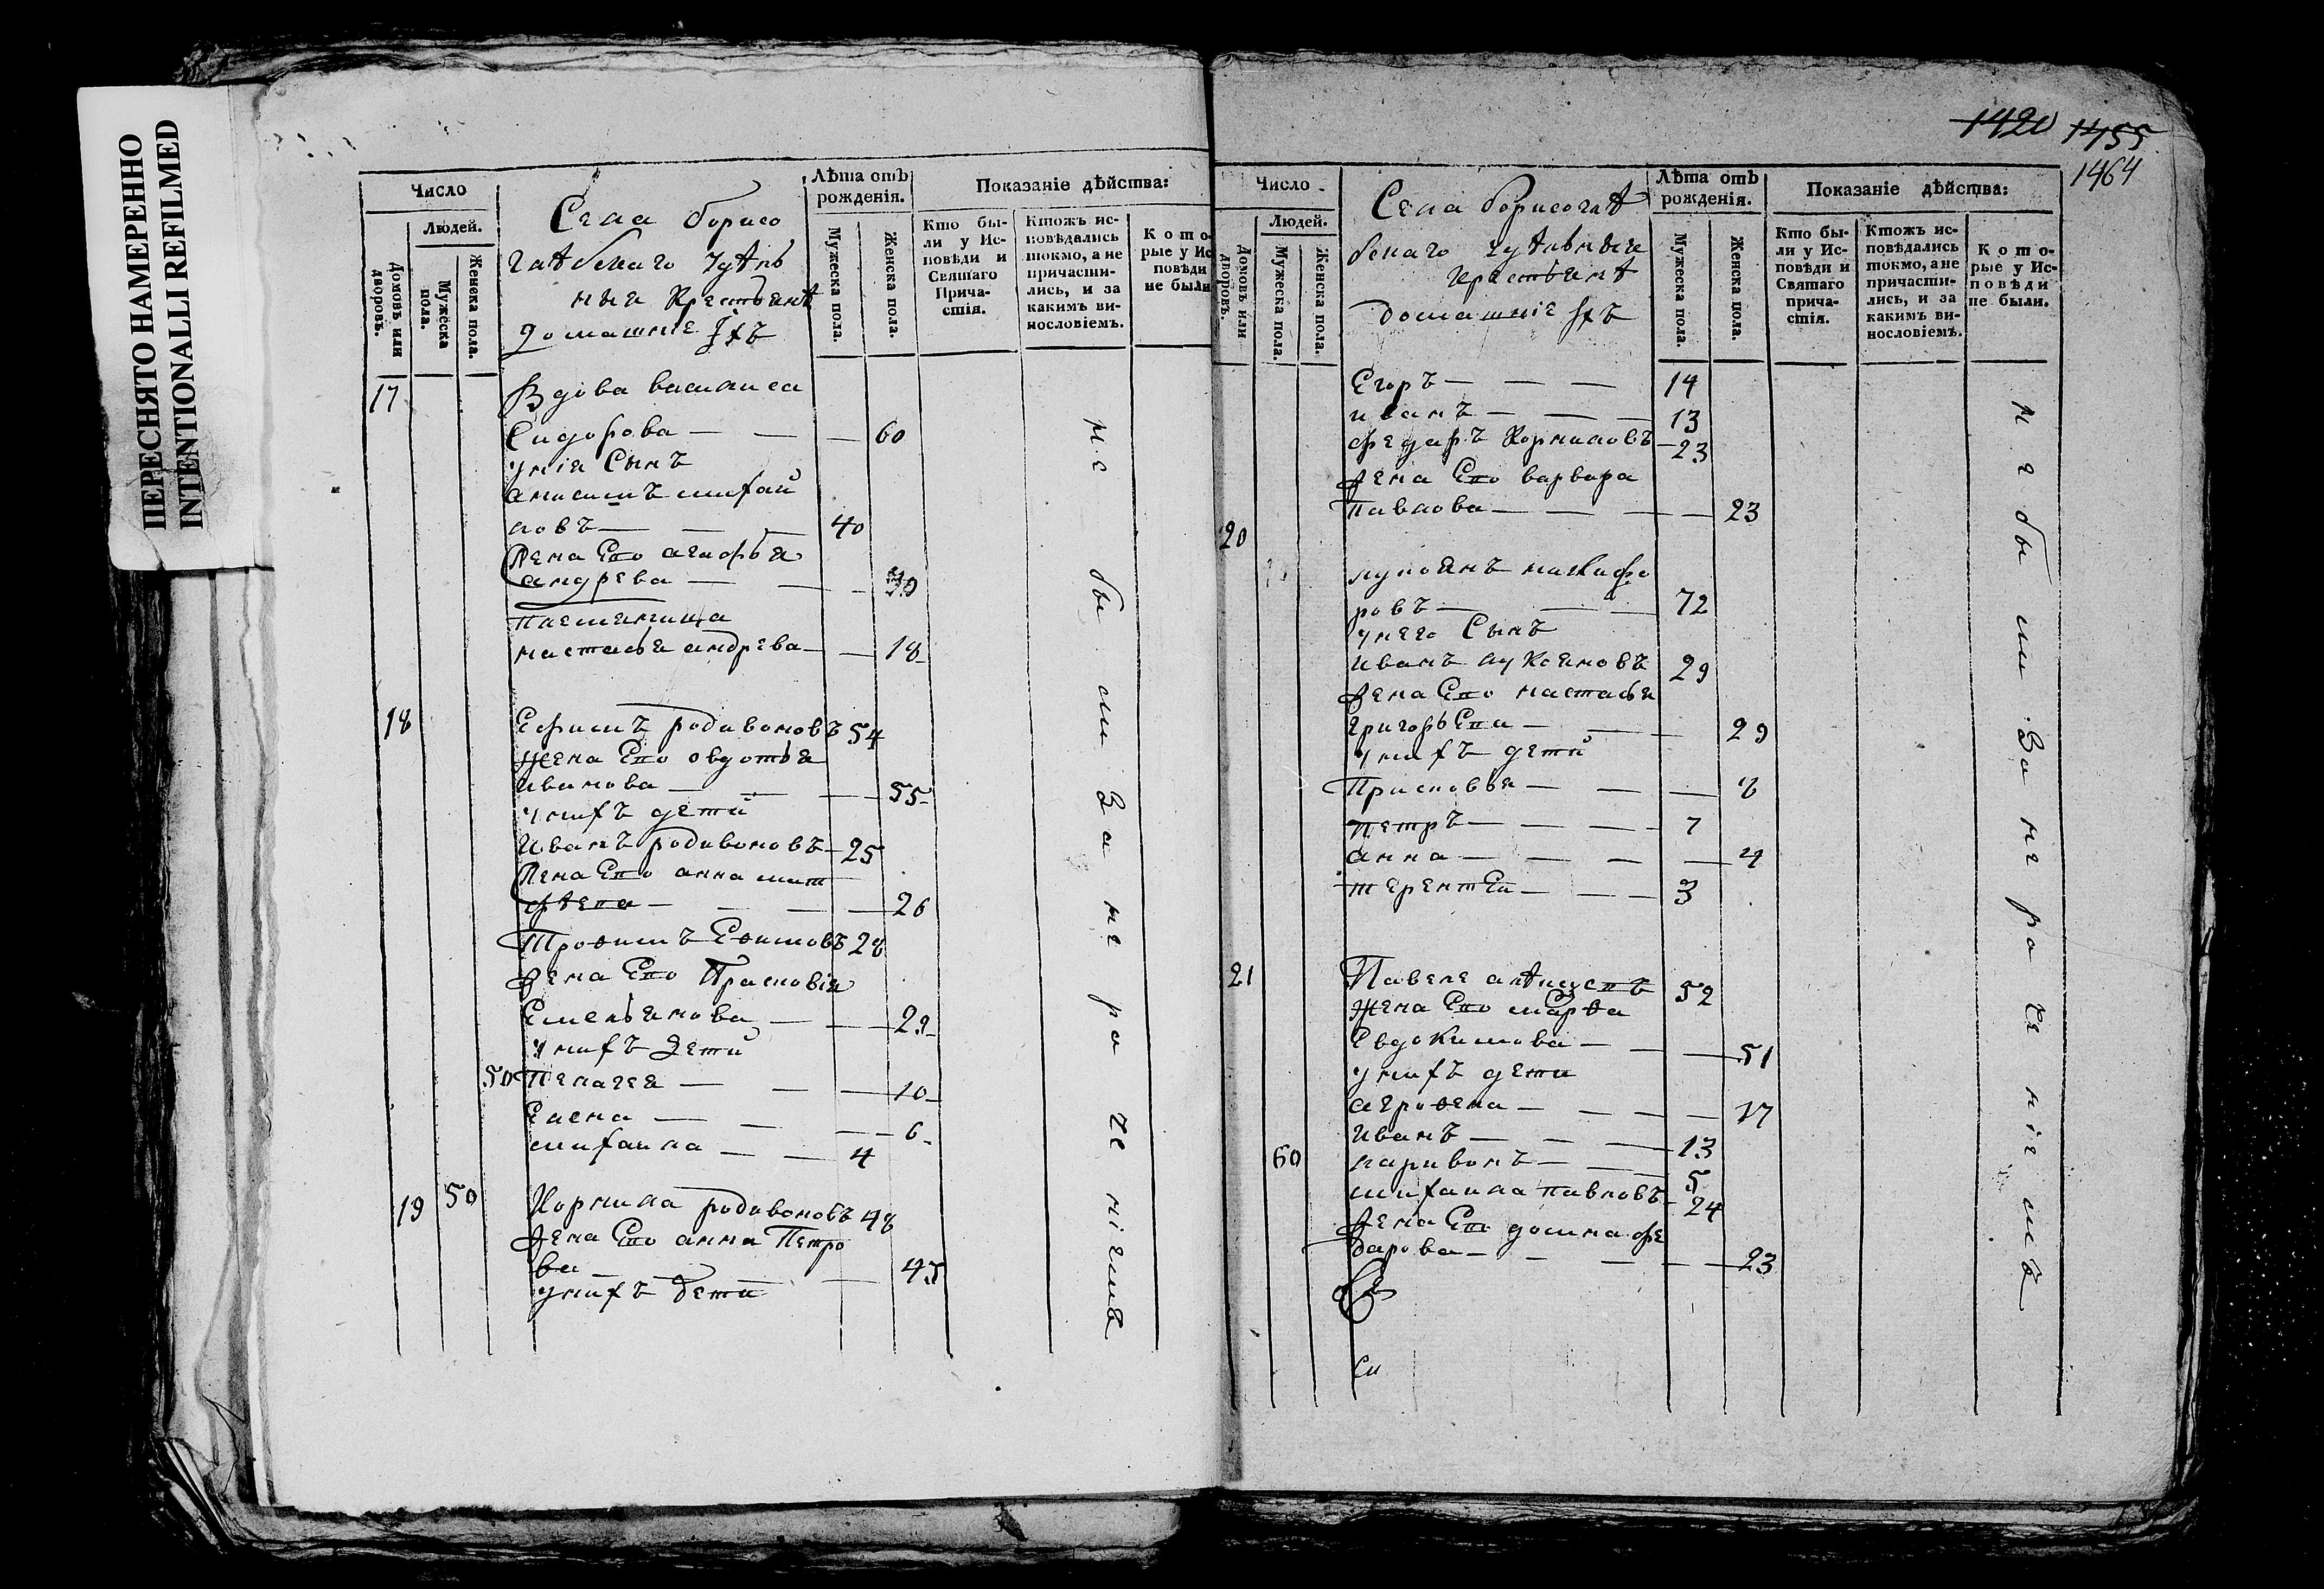 ПЕРЕСНЯТО НАМЕРЕННО
INTENTIONALLI REFILMED
Число
Людей.
Домовъ или дворовъ.
Мужеска пола.
Женска пола.
Села борисо
глѣбскаго удѣль
ныи крестьянѣ
домашніе Ихъ
Лѣта отъ рожденія.
Мужеска пола.
Женска пола.
Показаніе дѣйства:
Кто бы-
ли у Ис-
повѣди и
Святаго
Прича-
стія.
Ктожъ ис-
повѣдались
токмо, а не
причасти-
лись, и за
какимъ ви-
нословіемъ.
Кото-
рые у Ис
повѣди
не были
17
Вдова василиса
Сидорова — — — 60
унія Сынъ
анисимъ михай
ловъ — — — 40
Жена Его агафья
андрева — — —
племянница
настасья андрева — — 18
18
Ефимъ родивоновъ 54
жена Его овдотья
Иванова — — — 55
унихъ дети
Иванъ родивоновъ — 25
Жена Его анна мат
фѣева — — — 26
Трофимъ Ефимовъ 28
жена Его Прасковія
Емельянова — — 29
унихъ Дети
50 Пелагея — — — 10
Елена — — — 6
михаила — — 4
19 50
Корнила родивоновъ 48
жена Его анна Петро
ва — — 45
унихъ Дети
не были За нерачениемъ
1420 1455
1464
Число
Людей.
Домовъ или дворовъ.
Мужеска пола.
Женска пола.
Села борисоглѣ
бскаго удѣльные
крестьянѣ
домашніе Ихъ
Лѣта отъ рожденія.
Мужеска пола.
Женска пола.
Показаніе дѣйства:
Кто бы-
ли у Ис-
повѣди и
Святаго
прича-
стія.
Ктожъ ис-
повѣдались
токмо, а не
причасти-
лись, и за
какимъ ви-
нословіемъ.
Кото-
рые у Ис-
повѣди
не были.
Егоръ — — — 14
иванъ — — — 13
федаръ Корниловъ — 23
жена Его варвара
Павлова — — — 23
20
лукоянъ никифо
ровъ — — 72
унего Сынъ
иванъ лукояновъ 29
жена Его настасья
григорьева — — 29
унихъ дети
Присковья — — — 8
петръ — — — 7
анна — — — 4
терентеи — — 3
21
Павелъ 52
жена Его марфа
Евдокимова — — 51
унихъ дети
агрофена — — — 17
Иванъ — — — 13
60 ларивонъ — — 5
михаила павловъ — 24
жена Его домна фе
дарова — — — 23
не были За нерачениемъ